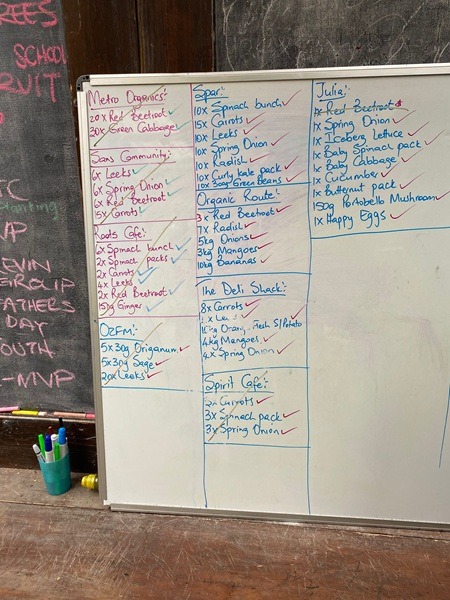 REES
SCHOOL
RUIT
TC
Planting
VP
EVIN
GROUP
FATHERS
DAY
YOUTH
-NVP
Metro Organics:
20x Red Beetroot
30x Green Cabbage
Sans Community:
6x Leeks
6x Spring Onion
6x Red Beetroot
15x Carrots
Roots Cafe:
2x Spinach bunch
2x Spinach packs
2x Carrots
4x Leeks
2x Red Beetroot
150g Ginger
OZFM:
5x30g Origanum
5x30g Sage
20x Leeks
Spar:
10x Spinach bunch
15x Carrots
10x Leeks
10x Spring Onion
10x Radish
10x Curly kale pack
10x 300g Green Beans
Organic Route:
3x Red Beetroot
7x Radish
5kg Onions
3kg Mangoes
10kg Bananas
The Deli Shack:
8x Carrots
Orang Flesh S/Potato
4kg Mangoes
4x Spring Onion
Spirit Cafe:
2x Carrots
3x Spinach pack
3x Spring Onion
Julia:
1x Red Beetroot
1x Spring Onion
1x Iceberg Lettuce
1x Baby Spinach pack
1x Baby Cabbage
1x Cucumber
1x Butternut pack
150g Portobello Mushroom
1x Happy Eggs